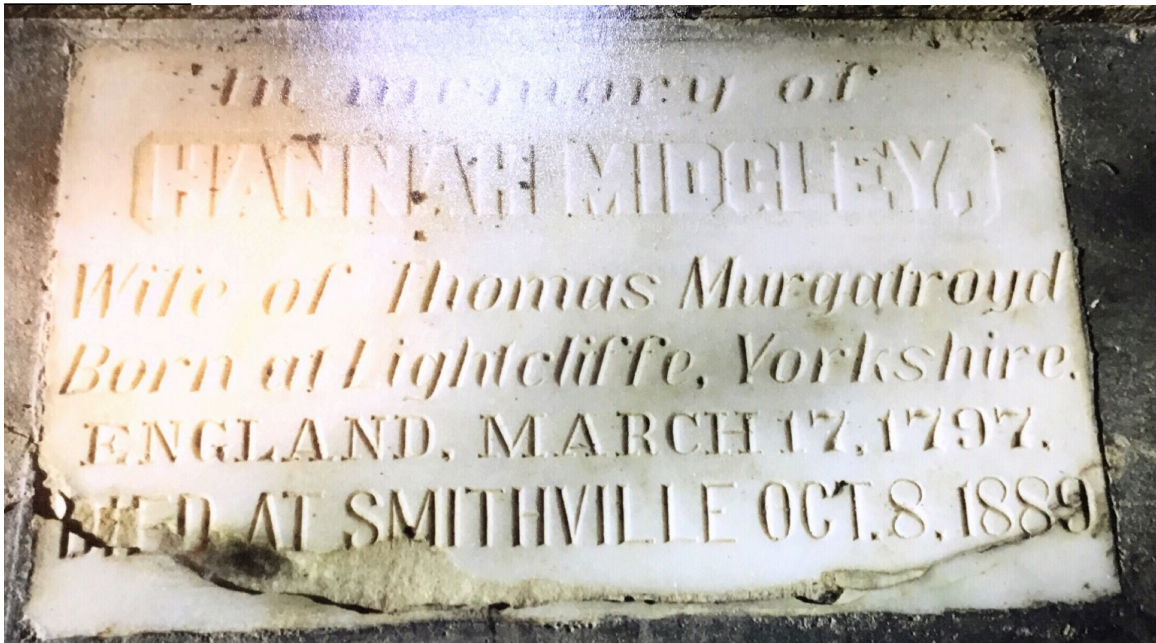 In memory of
HANNAH MIDGLEY,
Wife of Thomas Murgatroyd
Born at Lightcliffe, Yorkshire.
ENGLAND, MARCH 17, 1797,
DIED AT SMITHVILLE OCT. 8, 1889